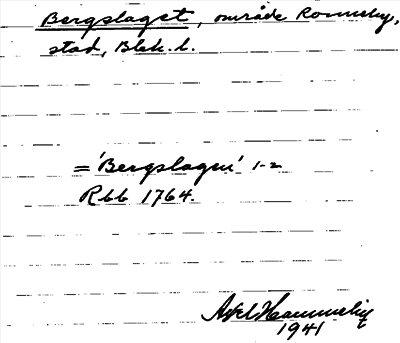 Bergslaget, område Ronneby,
stad, Blek. l.
= 'Bergslagen' 1-2
Rbb 1764.
Axel Hammerby
1941